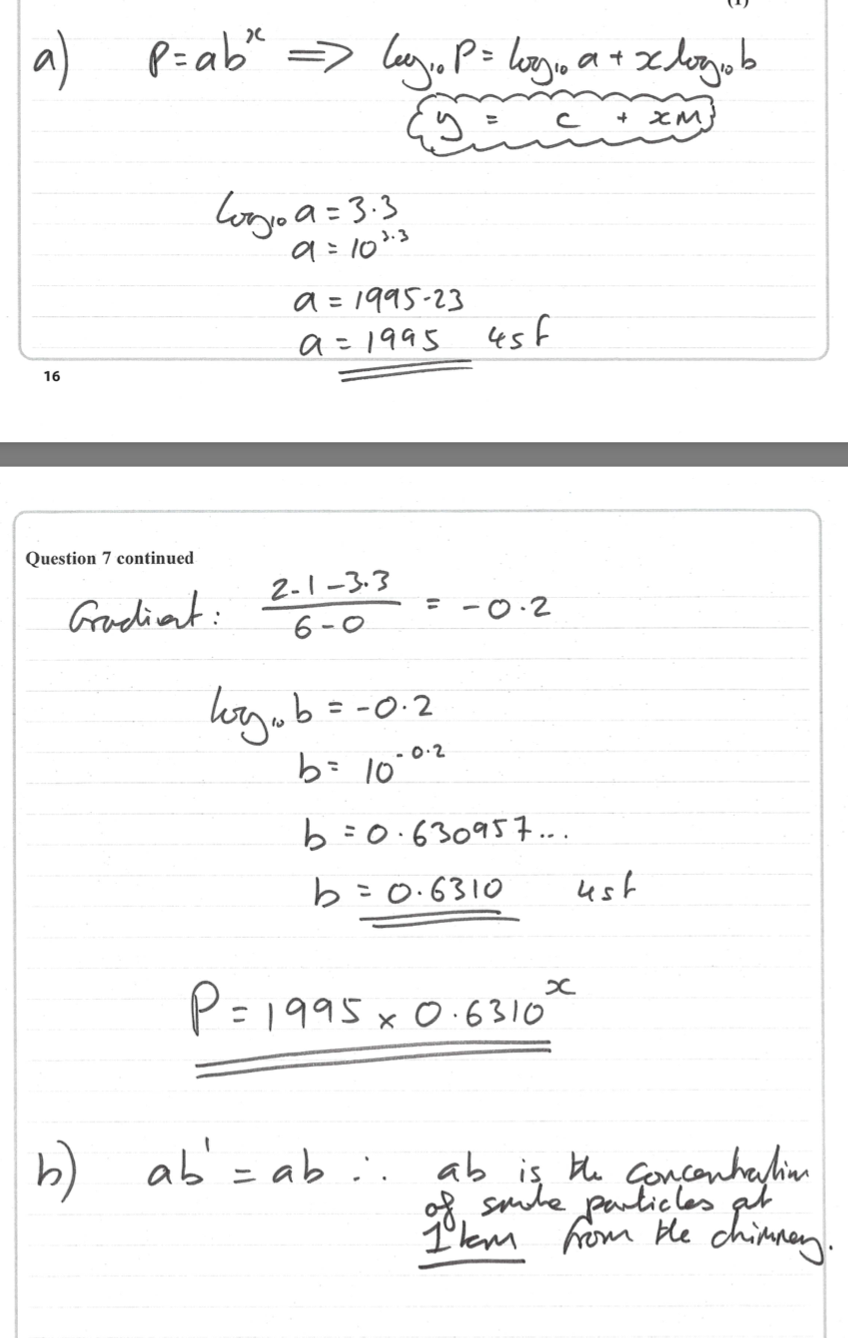 (1)
a) P = ab^x ⇒ log₁₀ P = log₁₀ a + x log₁₀ b
y = c + xM
log₁₀ a = 3.3
a = 10^3.3
a = 1995.23
a = 1995 4sf
16
Question 7 continued
Gradient: (2.1 - 3.3)/(6 - 0) = -0.2
log₁₀ b = -0.2
b = 10^-0.2
b = 0.630957...
b = 0.6310 4sf
P = 1995 × 0.6310^x
b) ab^1 = ab ∴ ab is the concentration
of smoke particles at
1km from the chimney.